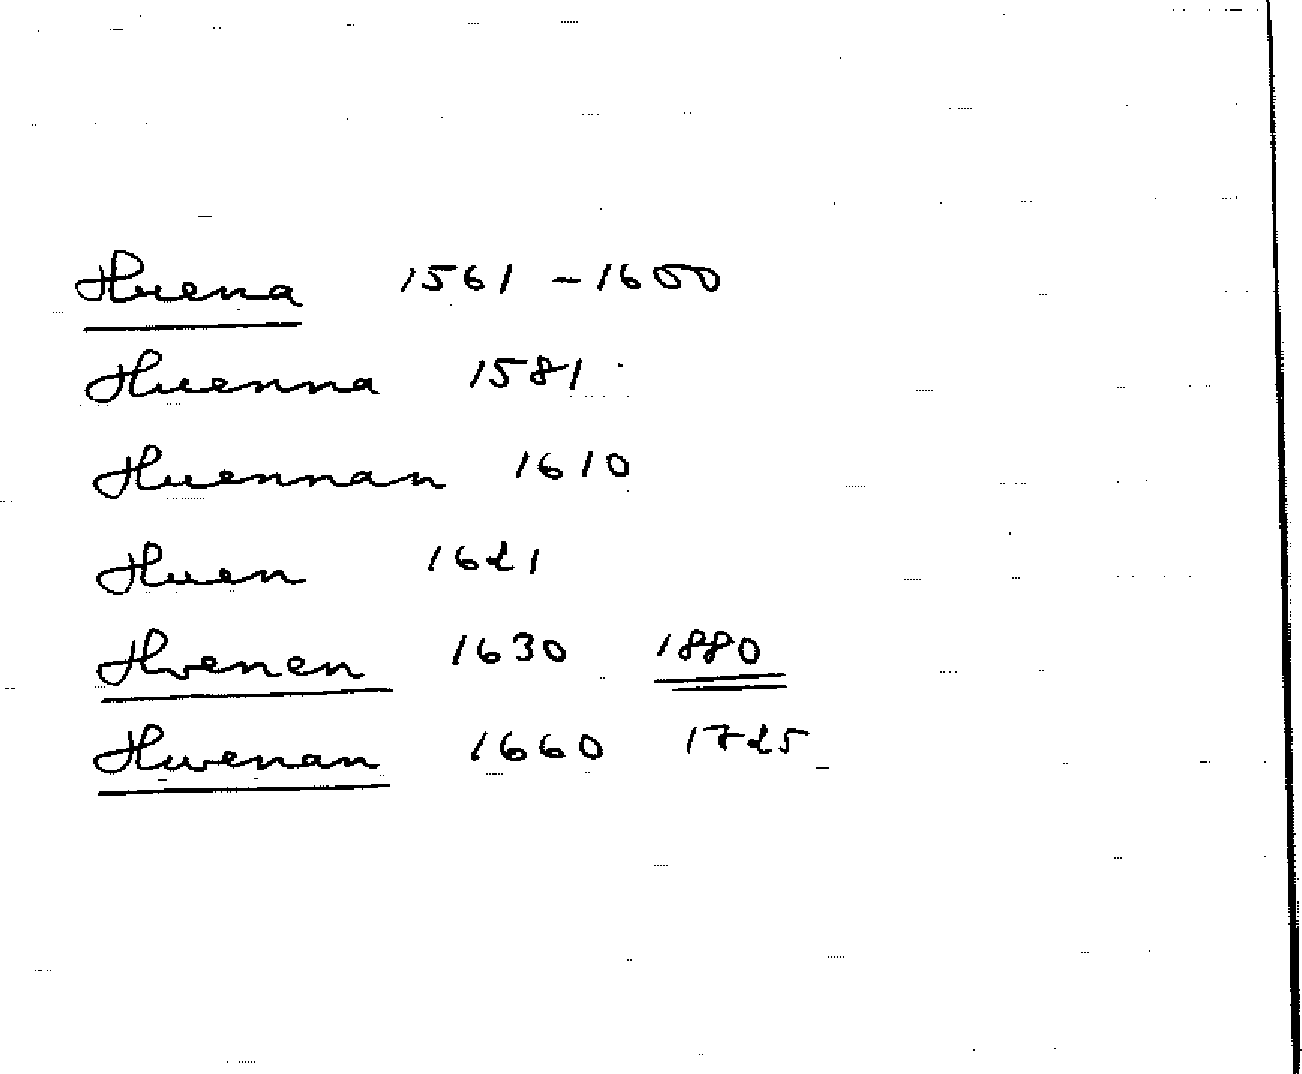 Huena 1561 - 1600
Huenna 1581
Huennan 1610
Huen 1621
Hvenen 1630 1880
Hwenan 1660 1725